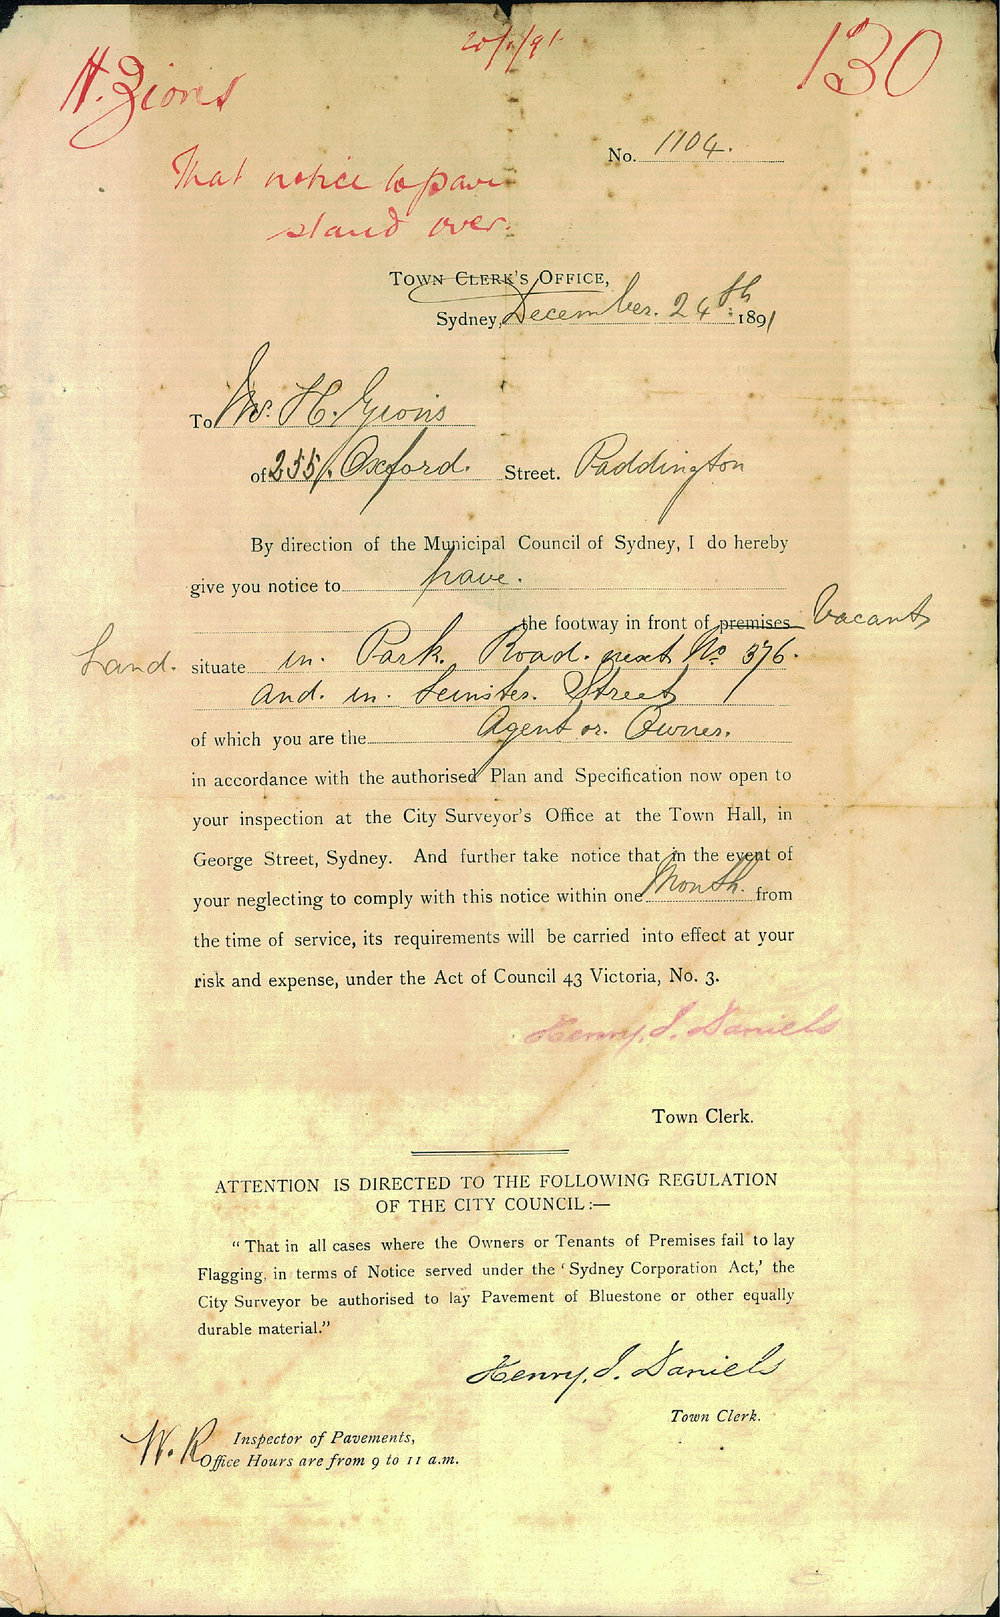 20/1/91
130
H. Zions
No. 1104.
That notice to pave
stand over.
TOWN CLERK'S OFFICE,
Sydney, December. 24th 1891
To Mr. H. Zions
of 255, Oxford. Street. Paddington
By direction of the Municipal Council of Sydney, I do hereby
give you notice to pave.
the footway in front of premises Vacant
Land. situate in. Park. Road. next No 376.
and. in. Leinster. Street
of which you are the Agent or. Owner.
in accordance with the authorised Plan and Specification now open to
your inspection at the City Surveyor's Office at the Town Hall, in
George Street, Sydney. And further take notice that in the event of
your neglecting to comply with this notice within one Month. from
the time of service, its requirements will be carried into effect at your
risk and expense, under the Act of Council 43 Victoria, No. 3.
Henry. J. Daniels
Town Clerk.
ATTENTION IS DIRECTED TO THE FOLLOWING REGULATION
OF THE CITY COUNCIL:—
"That in all cases where the Owners or Tenants of Premises fail to lay
Flagging, in terms of Notice served under the 'Sydney Corporation Act,' the
City Surveyor be authorised to lay Pavement of Bluestone or other equally
durable material."
Henry. J. Daniels
Town Clerk.
W. R Inspector of Pavements,
Office Hours are from 9 to 11 a.m.